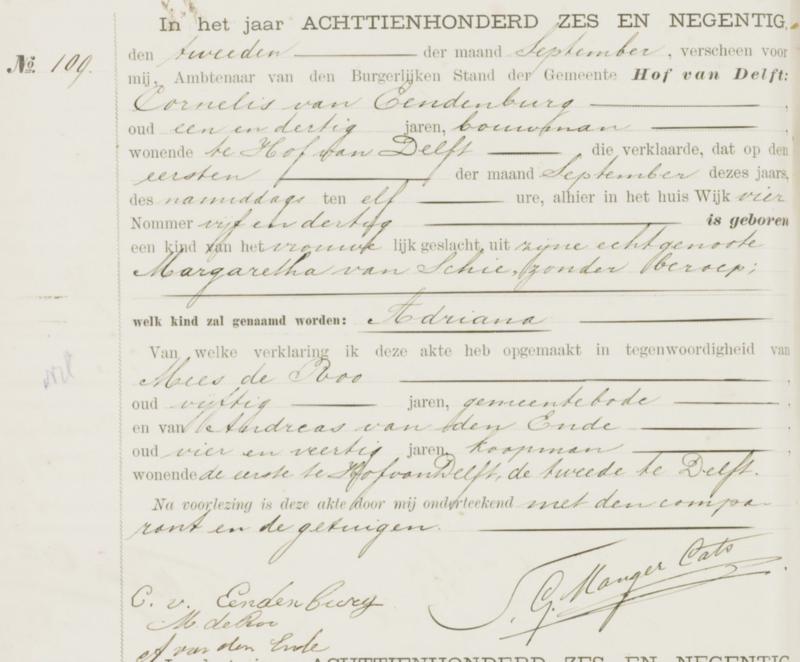 In het jaar ACHTTIENHONDERD ZES EN NEGENTIG,
den tweeden der maand September, verscheen voor
No. 109.
mij, Ambtenaar van den Burgerlijken Stand der Gemeente Hof van Delft:
Cornelis van Eendenburg,
oud een en dertig jaren, bouwman,
wonende te Hof van Delft die verklaarde, dat op den
eersten der maand September dezes jaars,
des namiddags ten elf ure, alhier in het huis Wijk vier
Nommer vijf en dertig is geboren
een kind van het vrouwelijk geslacht, uit zijne echtgenoote
Margaretha van Schie, zonder beroep;
welk kind zal genaamd worden: Adriana
Van welke verklaring ik deze akte heb opgemaakt in tegenwoordigheid van
Mees de Roo,
oud vijftig jaren, gemeentebode,
en van Andreas van den Ende,
oud vier en veertig jaren, koopman,
wonende de eerste te Hof van Delft, de tweede te Delft.
Na voorlezing is deze akte door mij onderteekend met den compa-
rant en de getuigen.
C. v. Eendenburg
M. de Roo
A van den Ende
G. Manger Cats
ACHTTIENHONDERD ZES EN NEGENTIG